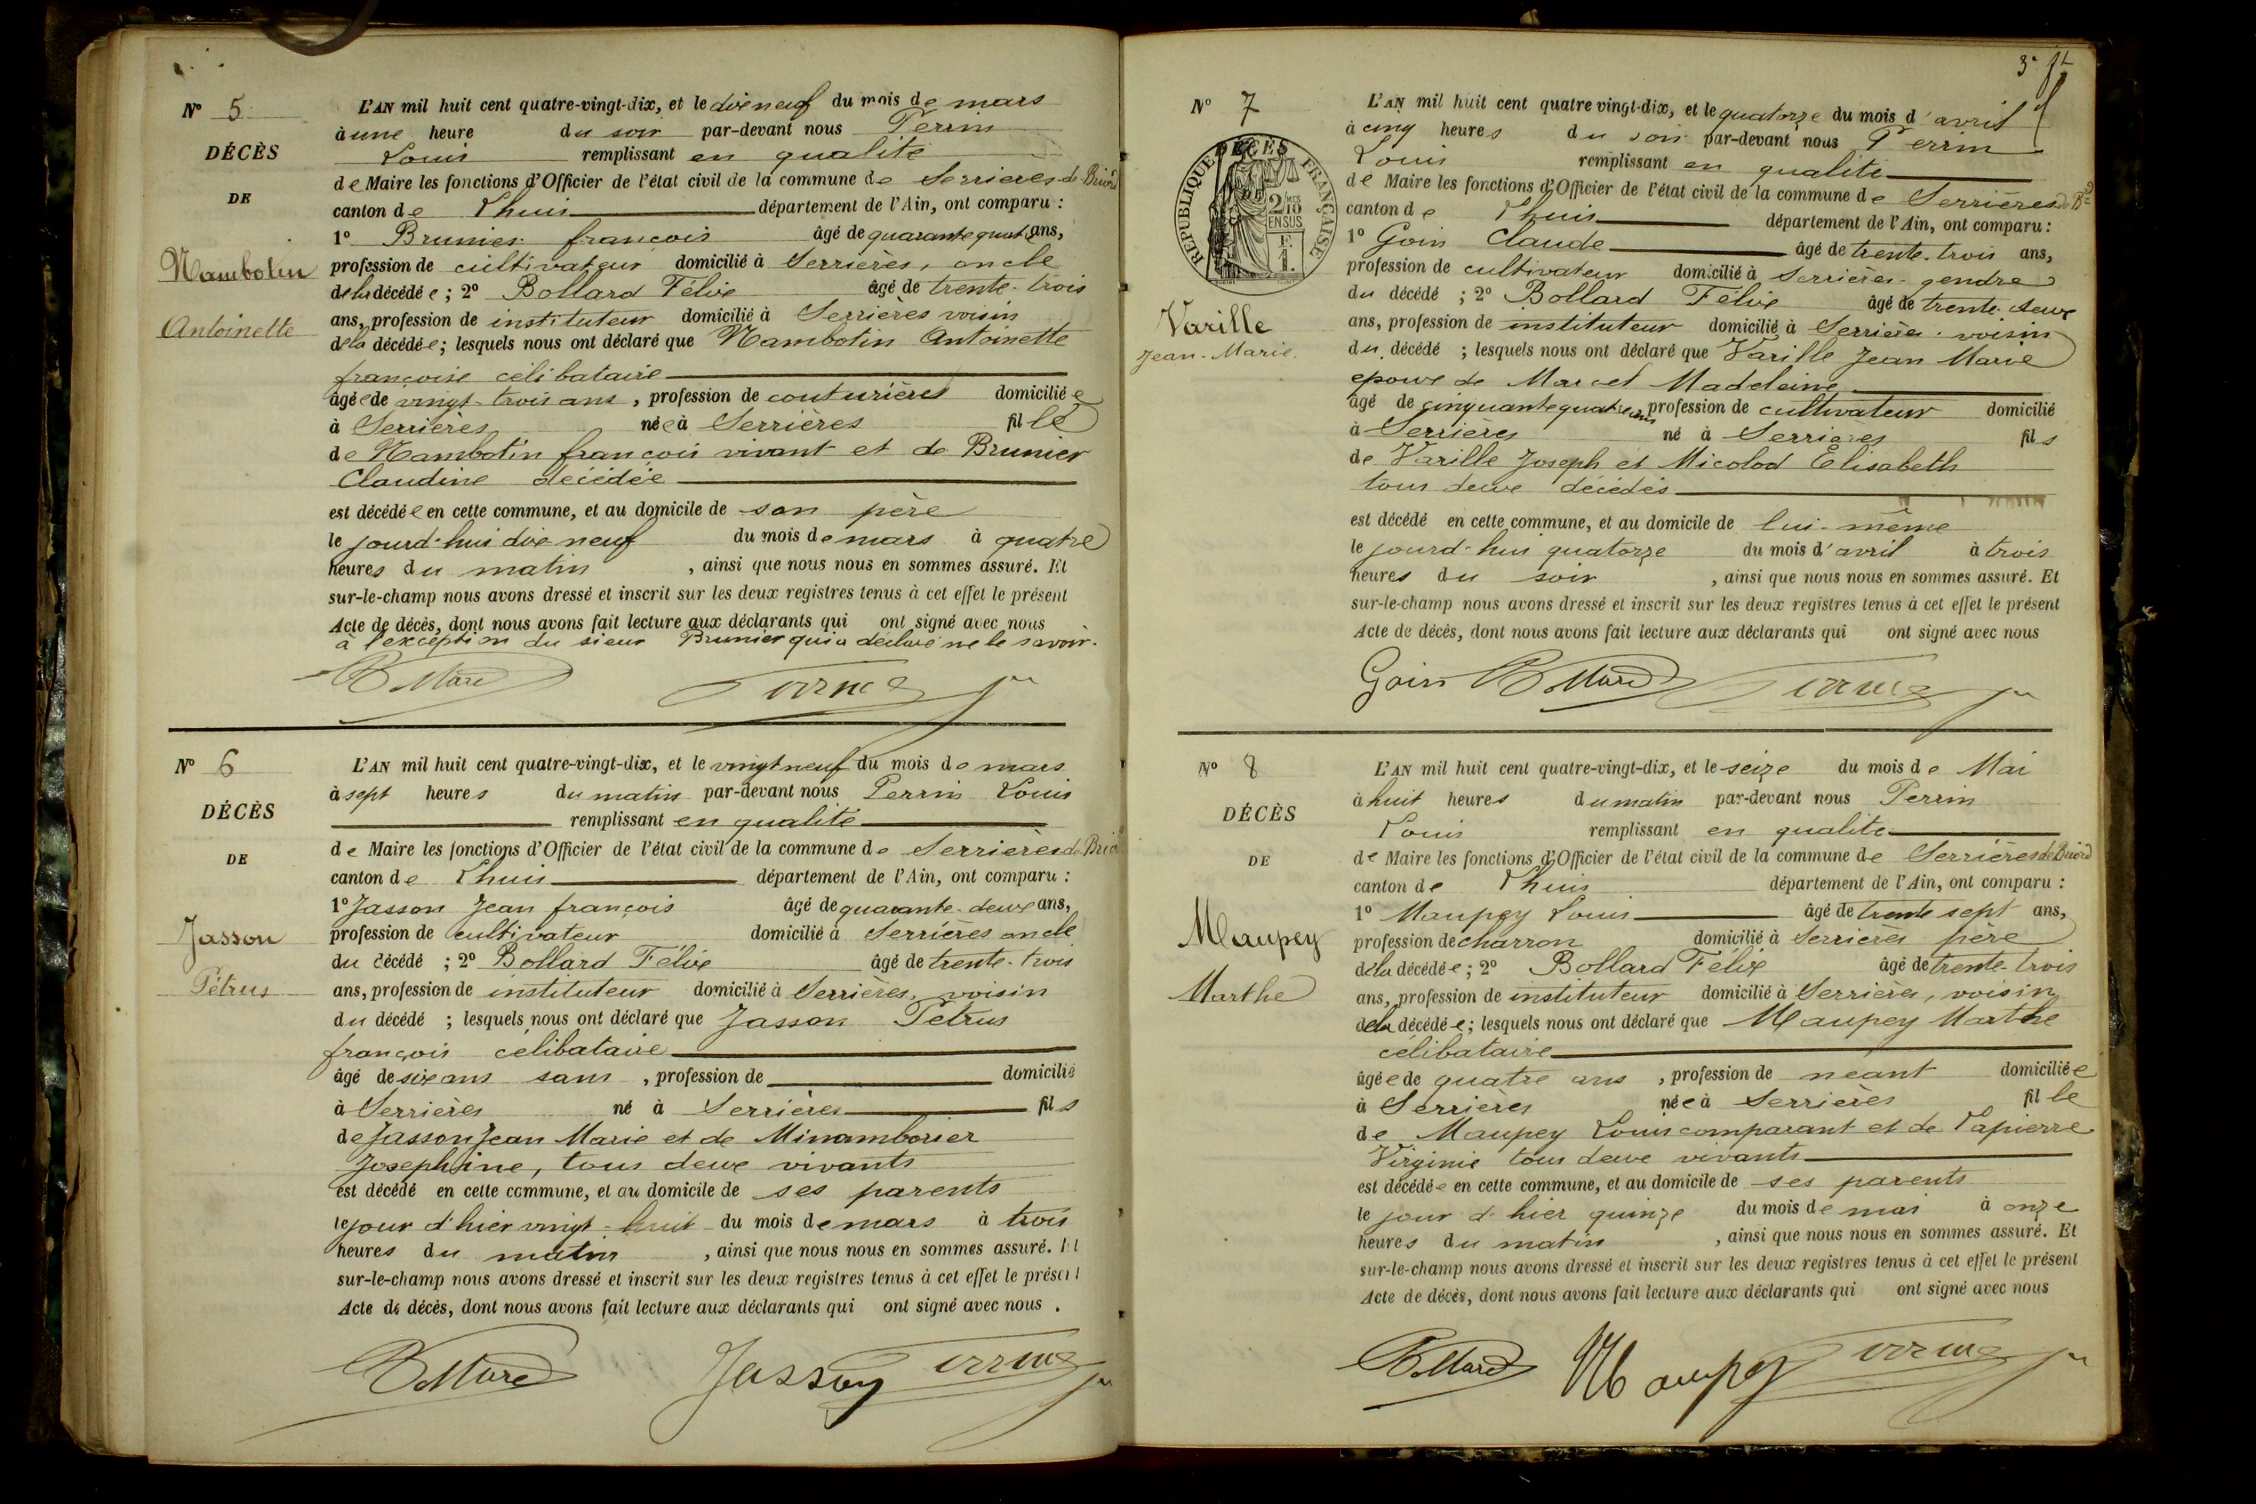 N° 5
DÉCÈS
DE
Nambotin
Antoinette
L'AN mil huit cent quatre-vingt-dix, et le dixneuf du mois de mars
à une heure du soir par-devant nous Perrin
Louis remplissant en qualité
de Maire les fonctions d'Officier de l'état civil de la commune de Serrières de Briord
canton de Lhuis département de l'Ain, ont comparu :
1° Brunier françois âgé de quarante quatre ans,
profession de cultivateur domicilié à Serrières, oncle
de la décédée ; 2° Bollard Félix âgé de trente-trois
ans, profession de instituteur domicilié à Serrières voisin
de la décédée ; lesquels nous ont déclaré que Nambotin Antoinette
françoise célibataire
âgée de vingt-trois ans, profession de couturières domiciliée
à Serrières née à Serrières fille
de Nambotin françois vivant et de Brunier
Claudine décédée
est décédée en cette commune, et au domicile de son père
le jourd'hui dix neuf du mois de mars à quatre
heures du matin, ainsi que nous nous en sommes assuré. Et
sur-le-champ nous avons dressé et inscrit sur les deux registres tenus à cet effet le présent
Acte de décès, dont nous avons fait lecture aux déclarants qui ont signé avec nous
à l'exception du sieur Brunier qui a déclaré ne le savoir.
Bollard Perrin
N° 6
DÉCÈS
DE
Jasson
Pétrus
L'AN mil huit cent quatre-vingt-dix, et le vingt neuf du mois de mars
à sept heures du matin par-devant nous Perrin Louis
remplissant en qualité
de Maire les fonctions d'Officier de l'état civil de la commune de Serrières de Briord
canton de Lhuis département de l'Ain, ont comparu :
1° Jasson Jean françois âgé de quarante-deux ans,
profession de cultivateur domicilié à Serrières oncle
du décédé ; 2° Bollard Félix âgé de trente-trois
ans, profession de instituteur domicilié à Serrières, voisin
du décédé ; lesquels nous ont déclaré que Jasson Petrus
françois célibataire
âgé de six ans sans, profession de domicilié
à Serrières né à Serrières fils
de Jasson Jean Marie et de Minamborier
Josephine, tous deux vivants
est décédé en cette commune, et au domicile de ses parents
le jour d'hier vingt-huit du mois de mars à trois
heures du matin, ainsi que nous nous en sommes assuré. Et
sur-le-champ nous avons dressé et inscrit sur les deux registres tenus à cet effet le présent
Acte de décès, dont nous avons fait lecture aux déclarants qui ont signé avec nous.
Bollard Jasson Perrin
3e
N° 7
DÉCÈS
RÉPUBLIQUE FRANÇAISE
2/10 EN SUS
F. 1.
Varille
Jean-Marie.
L'AN mil huit cent quatre vingt-dix, et le quatorze du mois d'avril
à cinq heures du soir par-devant nous Perrin
Louis remplissant en qualité
de Maire les fonctions d'Officier de l'état civil de la commune de Serrières de Bd
canton de Lhuis département de l'Ain, ont comparu :
1° Goin Claude âgé de trente-trois ans,
profession de cultivateur domicilié à Serrières-gendre
du décédé ; 2° Bollard Félix âgé de trente-deux
ans, profession de instituteur domicilié à Serrières-voisin
du décédé ; lesquels nous ont déclaré que Varille Jean Marie
epoux de Marcel Madeleine
âgé de cinquante quatre ans profession de cultivateur domicilié
à Serrières né à Serrières fils
de Varille Joseph et Micolod Elisabeth
tous deux décédés
est décédé en cette commune, et au domicile de lui-même
le jourd'hui quatorze du mois d'avril à trois
heures du soir, ainsi que nous nous en sommes assuré. Et
sur-le-champ nous avons dressé et inscrit sur les deux registres tenus à cet effet le présent
Acte de décès, dont nous avons fait lecture aux déclarants qui ont signé avec nous
Goin Bollard Perrin
N° 8
DÉCÈS
DE
Maupey
Marthe
L'AN mil huit cent quatre-vingt-dix, et le seize du mois de Mai
à huit heures du matin par-devant nous Perrin
Louis remplissant en qualité
de Maire les fonctions d'Officier de l'état civil de la commune de Serrières de Briord
canton de Lhuis département de l'Ain, ont comparu :
1° Maupey Louis âgé de trente sept ans,
profession de charron domicilié à Serrières père
de la décédée ; 2° Bollard Félix âgé de trente-trois
ans, profession de instituteur domicilié à Serrières, voisin
de la décédée ; lesquels nous ont déclaré que Maupey Marthe
célibataire
âgée de quatre ans, profession de néant domiciliée
à Serrières née à Serrières fille
de Maupey Louis comparant et de Lapierre
Virginie tous deux vivants
est décédée en cette commune, et au domicile de ses parents
le jour d'hier quinze du mois de mai à onze
heures du matin, ainsi que nous nous en sommes assuré. Et
sur-le-champ nous avons dressé et inscrit sur les deux registres tenus à cet effet le présent
Acte de décès, dont nous avons fait lecture aux déclarants qui ont signé avec nous
Bollard Maupey Perrin